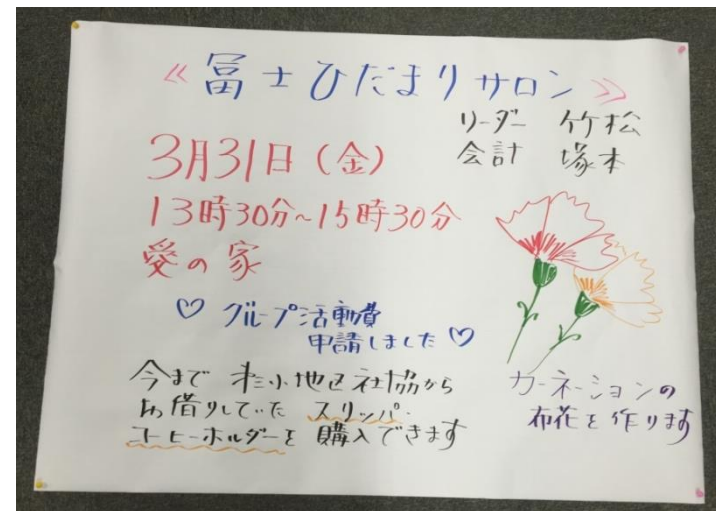 ≪冨士ひだまりサロン≫
リーダー 竹松
会計 塚本
3月31日(金)
13時30分~15時30分
愛の家
♡ グループ活動費
申請しました♡
今まで 杉小地区社協から
お借りしていた スリッパ・
コーヒーホルダーを 購入できます
カーネーションの
布花を作ります